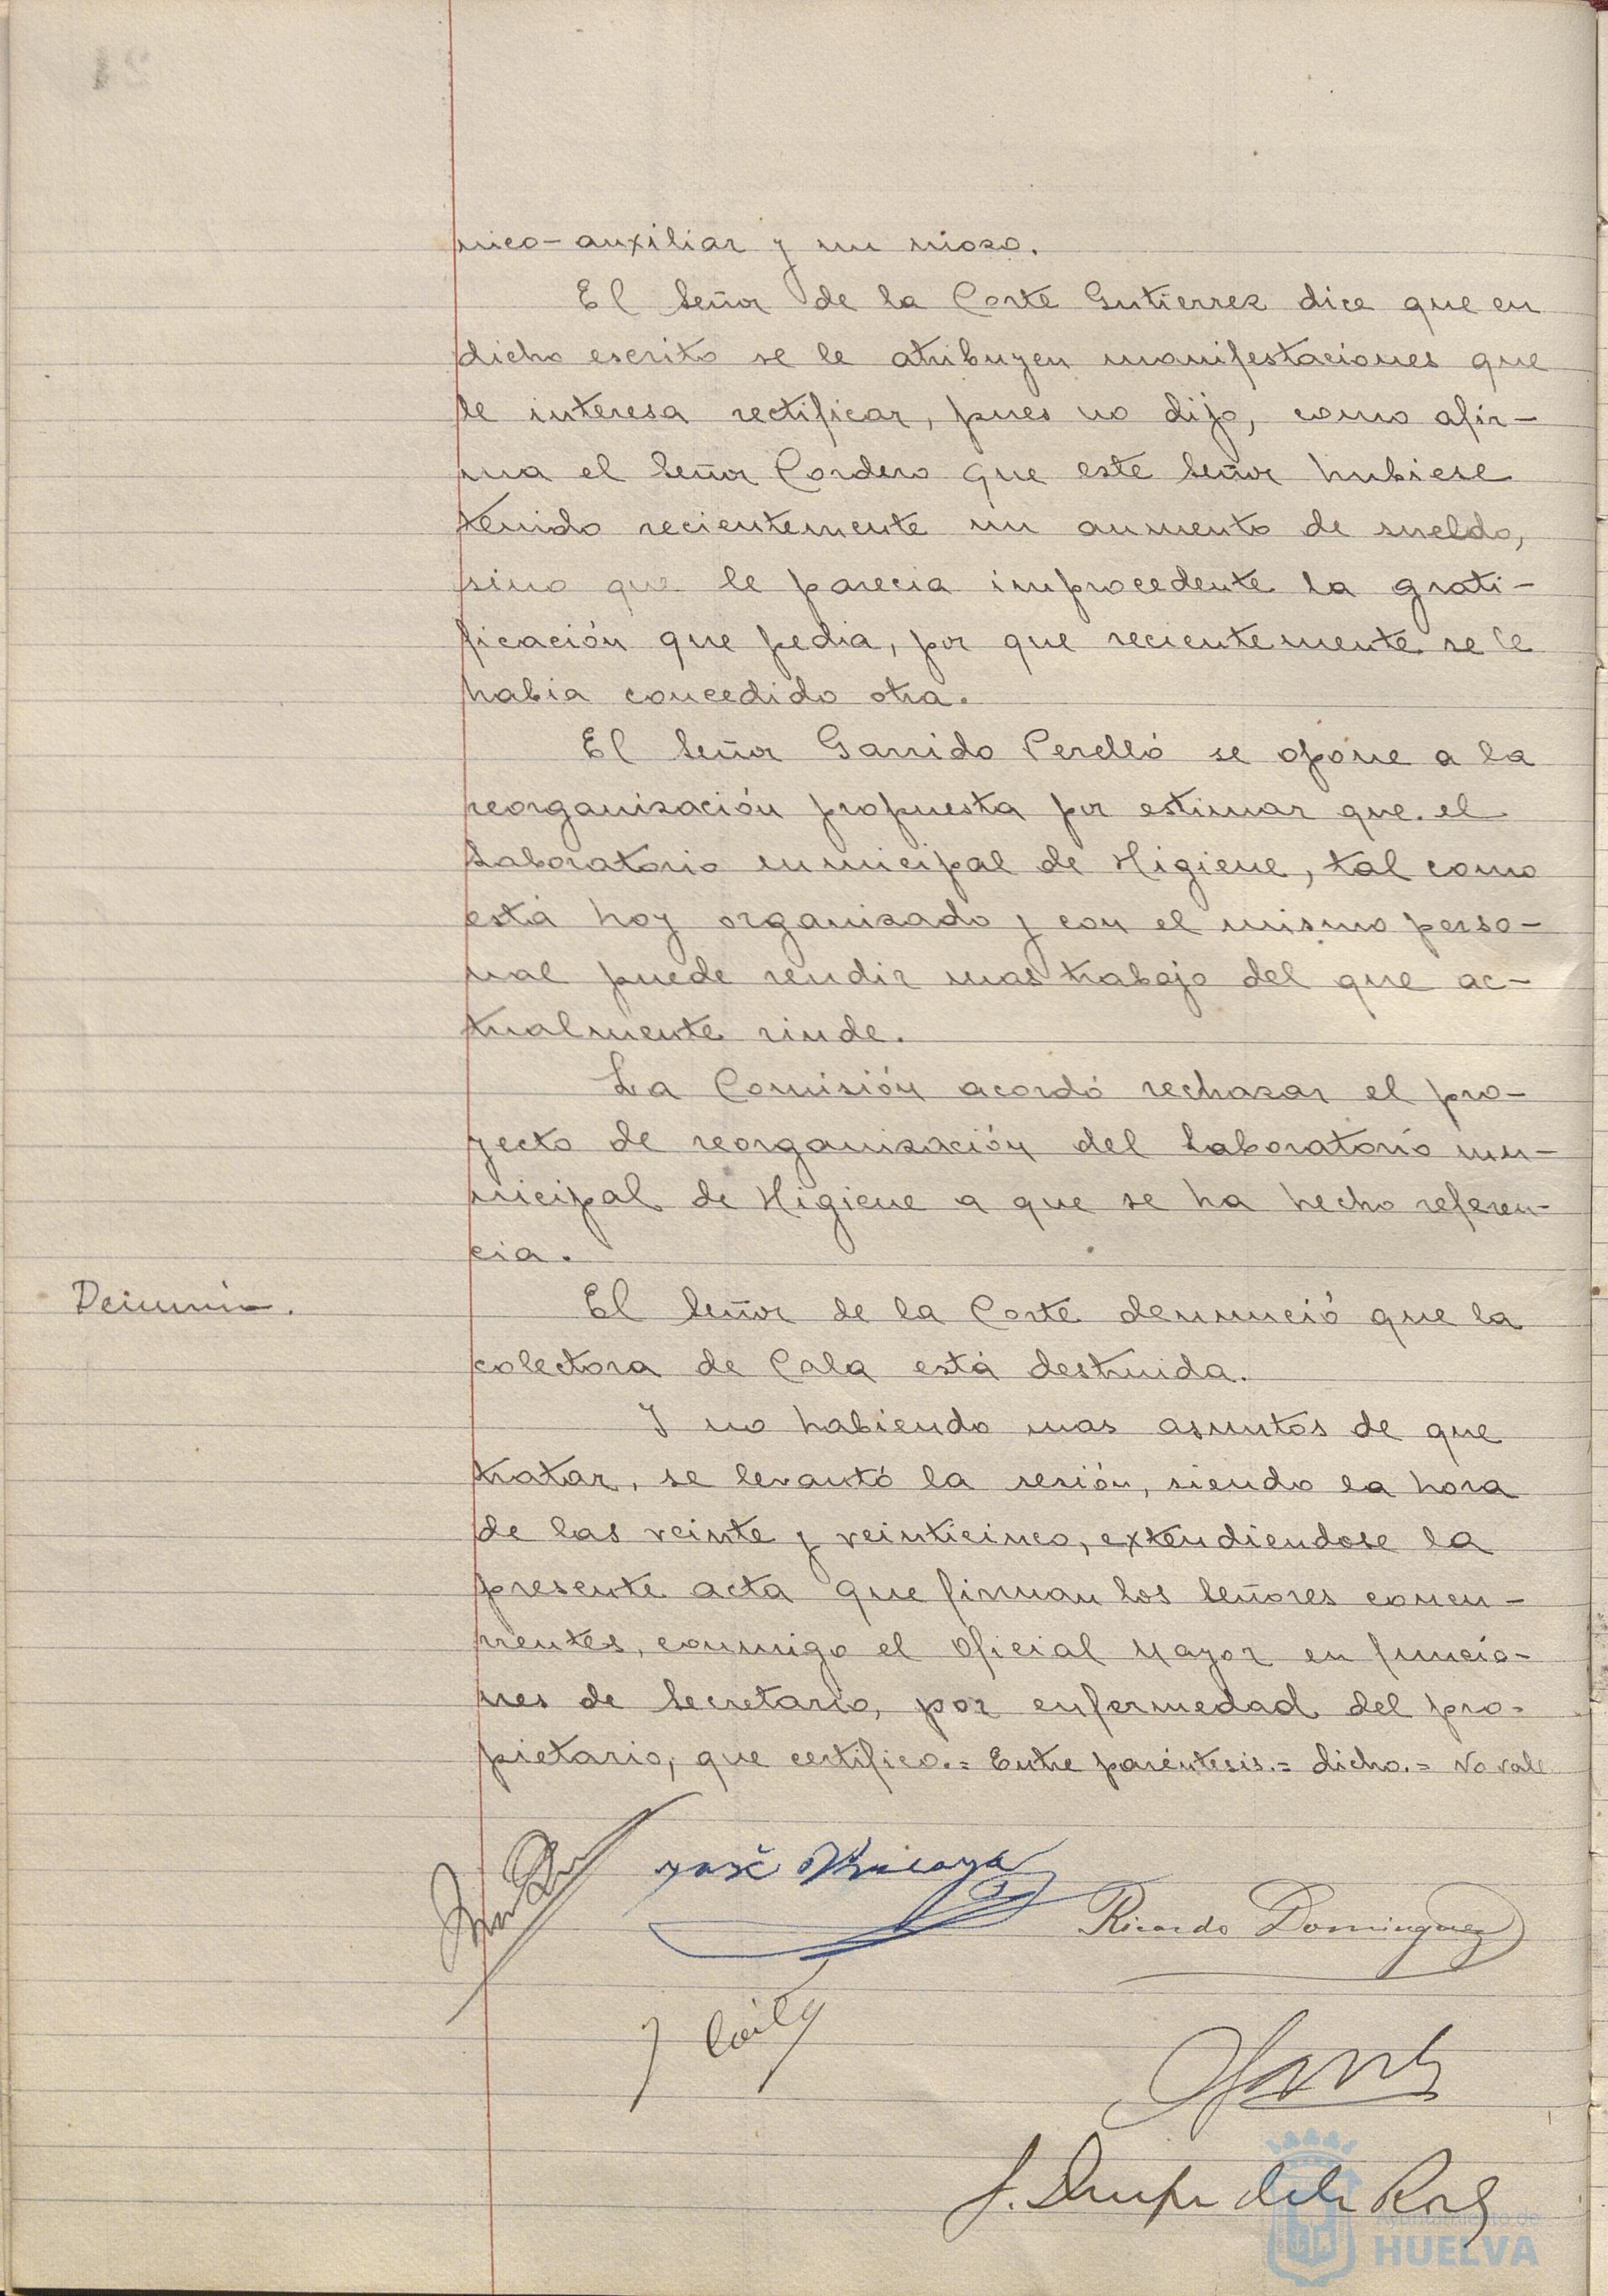 mico-auxiliar y un mozo.
El Señor de la Corte Gutierrez dice que en
dicho escrito se le atribuyen manifestaciones que
le interesa rectificar, pues no dijo, como afir-
ma el Señor Cordero que este Señor hubiese
tenido recientemente un aumento de sueldo,
sino que le parecia improcedente la grati-
ficación que pedia, por que recientemente se le
habia concedido otra.
El Señor Garrido Perelló se opone a la
reorganización propuesta por estimar que el
Laboratorio municipal de Higiene, tal como
está hoy organizado y con el mismo perso-
nal puede rendir mas trabajo del que ac-
tualmente rinde.
La Comisión acordó rechazar el pro-
yecto de reorganización del Laboratorio mu-
nicipal de Higiene a que se ha hecho referen-
cia.
Denuncia.
El Señor de la Corte denunció que la
colectora de Cala está destruida.
Y no habiendo mas asuntos de que
tratar, se levantó la sesión, siendo la hora
de las veinte y veinticinco, extendiendose la
presente acta que firman los Señores concu-
rrentes, conmigo el Oficial Mayor en funcio-
nes de Secretario, por enfermedad del pro-
pietario, que certifico.= Entre paréntesis.= dicho.= No vale
José
Ricardo Dominguez
Ayuntamiento de
HUELVA